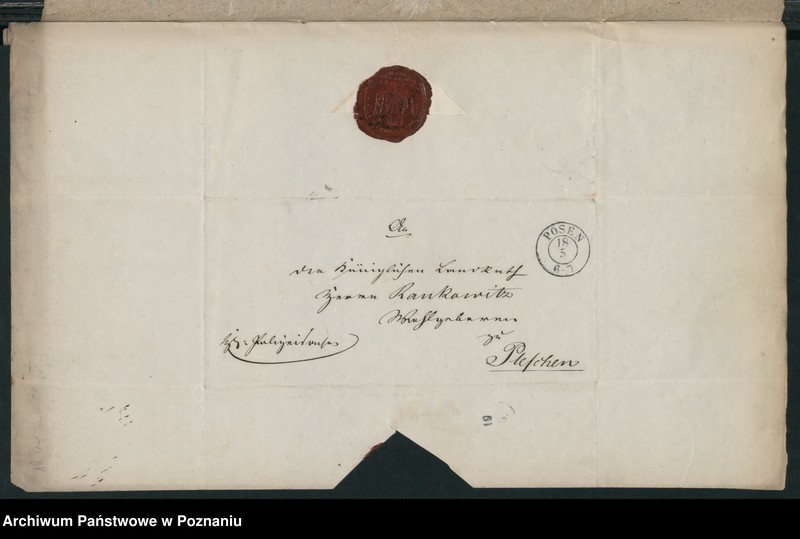 An
den Königlichen Landrath
Herrn Rankowitz
Wohlgeboren
zu
Pleschen
POSEN
18
5
6-7
19
Archiwum Państwowe w Poznaniu